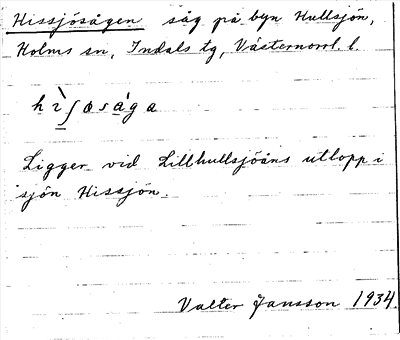 Hissjösågen såg på byn Hullsjön,
Holms sn, Indals tg, Västernorrl. l.
hìʃøsága
Ligger vid Lillhullsjöåns utlopp i
sjön Hissjön.
Valter Jansson 1934.